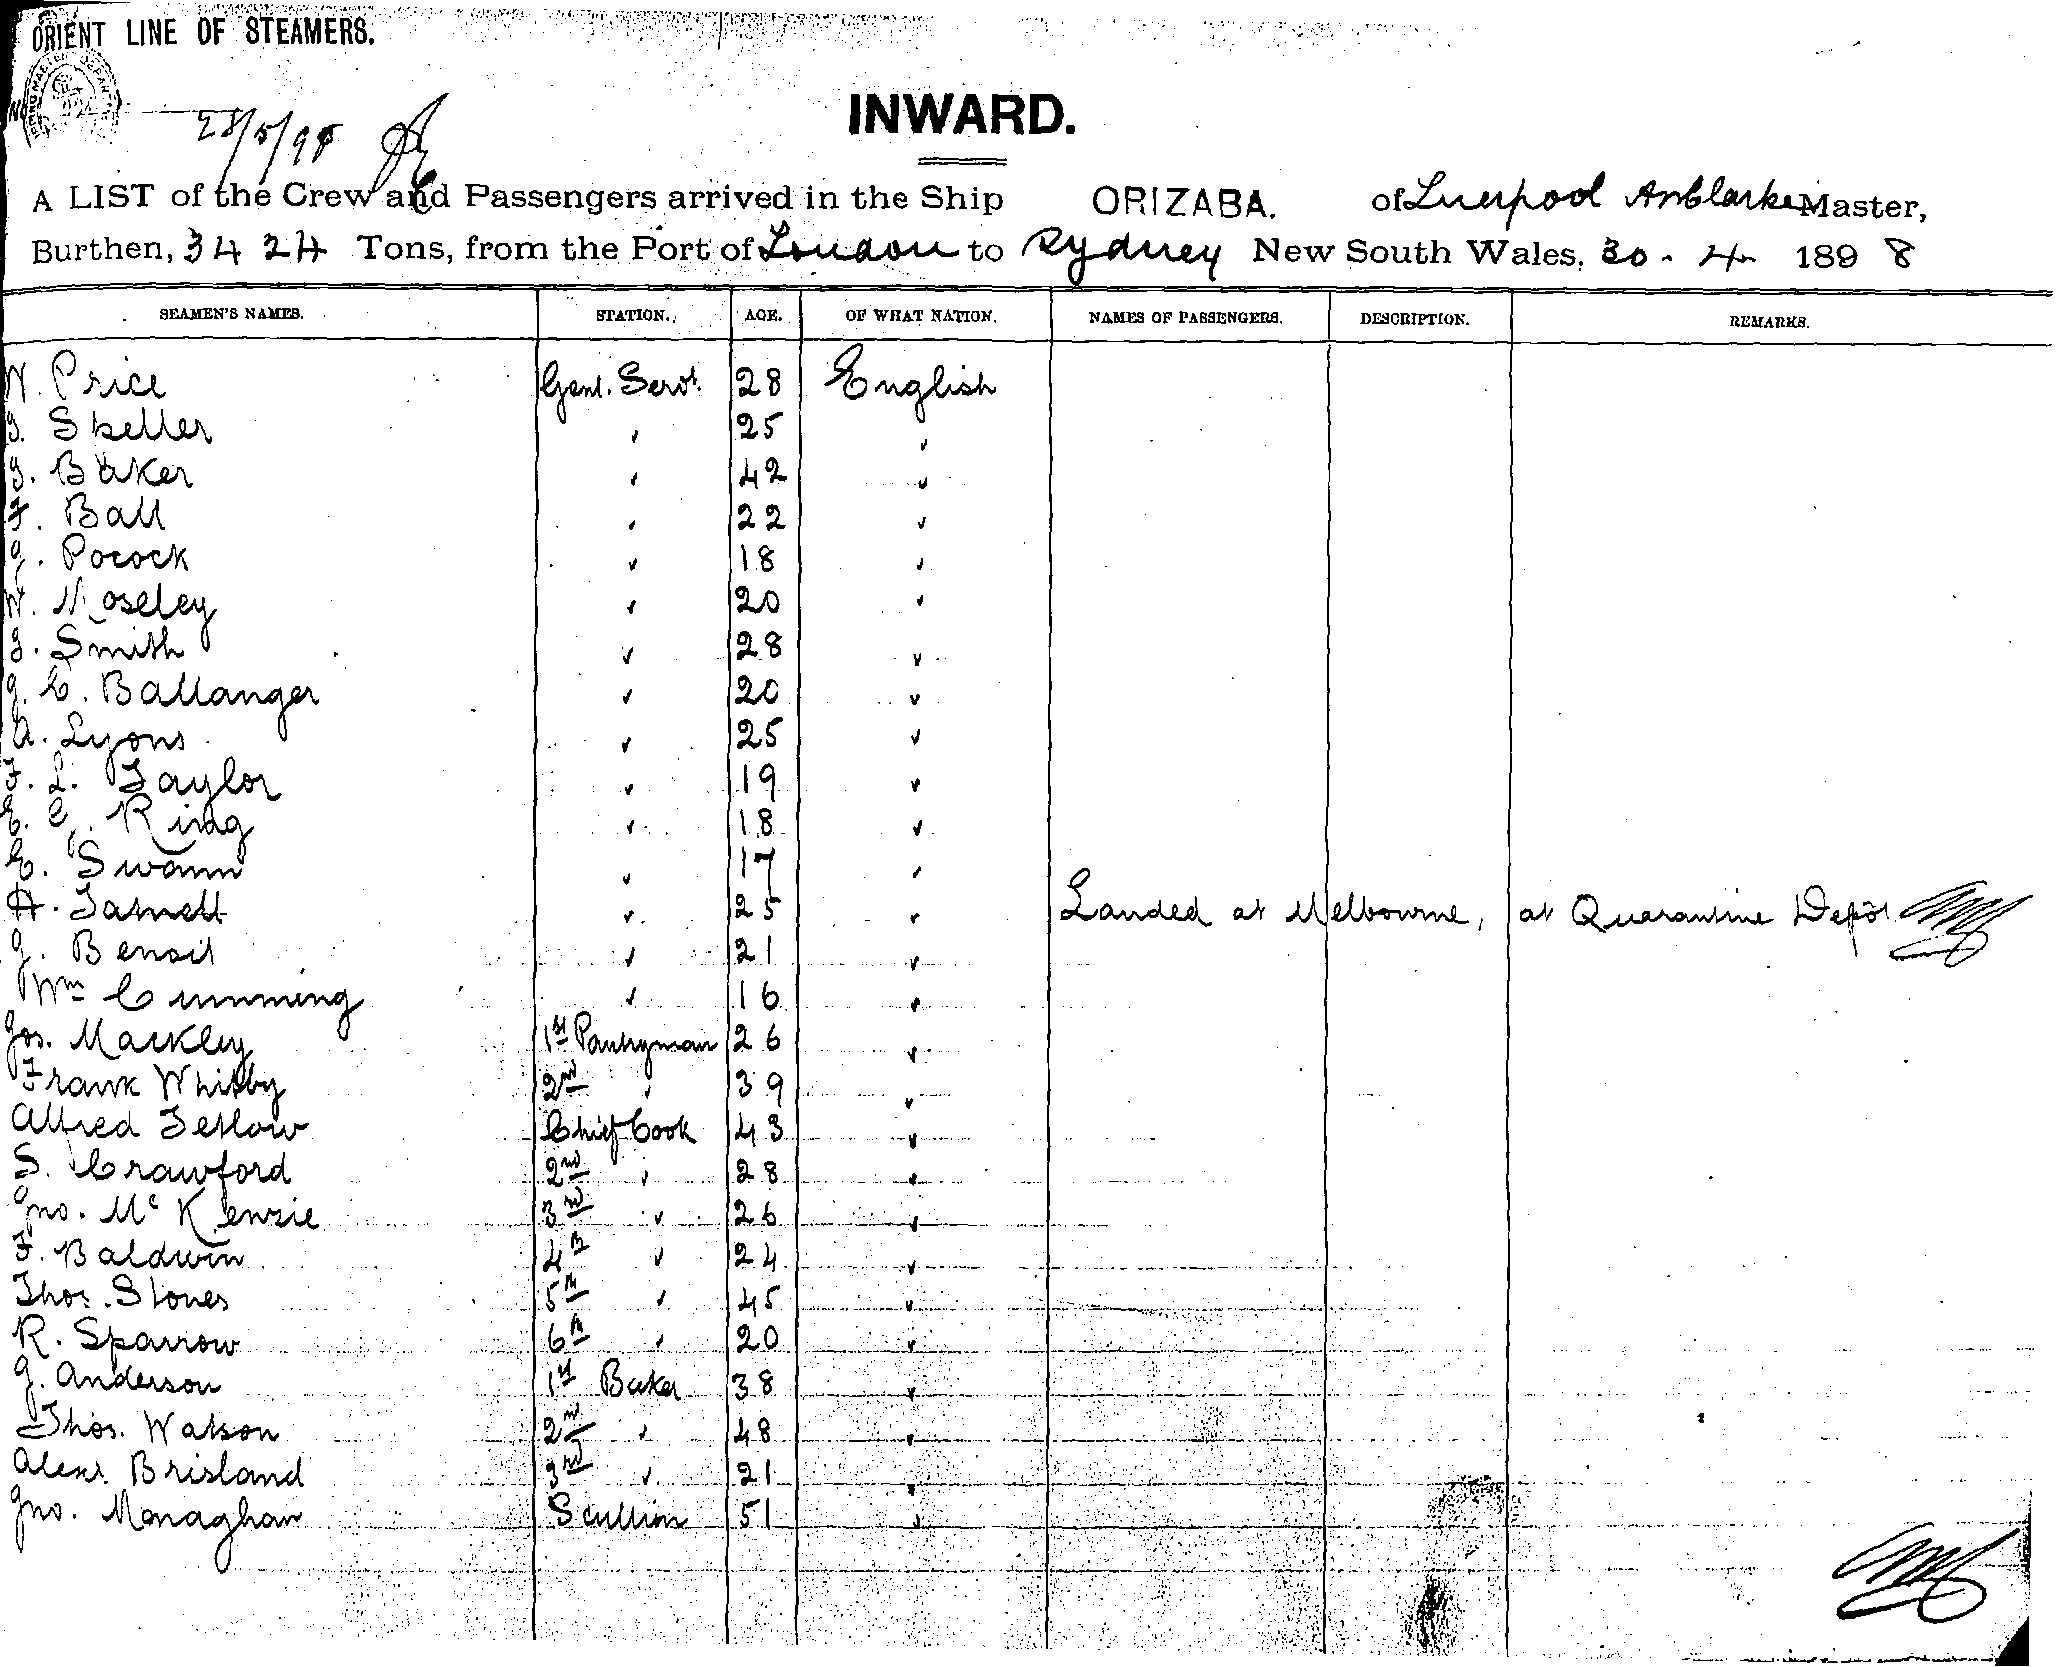 ORIENT LINE OF STEAMERS.
28/5/98
INWARD.
A LIST of the Crew and Passengers arrived in the Ship ORIZABA. of Liverpool Master,
Burthen, 3424 Tons, from the Port of London to Sydney New South Wales, 30 - 4 - 1898
SEAMEN'S NAMES. STATION. AGE. OF WHAT NATION. NAMES OF PASSENGERS. DESCRIPTION. REMARKS.
W. Price Genl. Servt. 28 English
Skeller " 25 "
Baker " 42 "
F. Ball " 22 "
Pocock " 18 "
W. Moseley " 20 "
Smith " 28 "
C. Ballanger " 20 "
A. Lyons " 25 "
F. L. Taylor " 19 "
E. C. Ring " 18 "
E. Swann " 17 "
25 " Landed at Melbourne, at Quarantine Depôt
Benoit " 21 "
Wm Cumming " 16 "
Jos. Mackley 1st Pantryman 26 "
Frank Whitby 2nd " 39 "
Alfred Tetlow Chief Cook 43 "
S. Crawford 2nd " 28 "
Jno. McKenzie 3rd " 26 "
F. Baldwin 4th " 24 "
Thos. Stones 5th " 45 "
R. Sparrow 6th " 20 "
J. Anderson 1st Baker 38 "
Thos. Watson 2nd " 48 "
Alexr. Brisland 3rd " 21 "
Jno. Monaghan Scullion 51 "